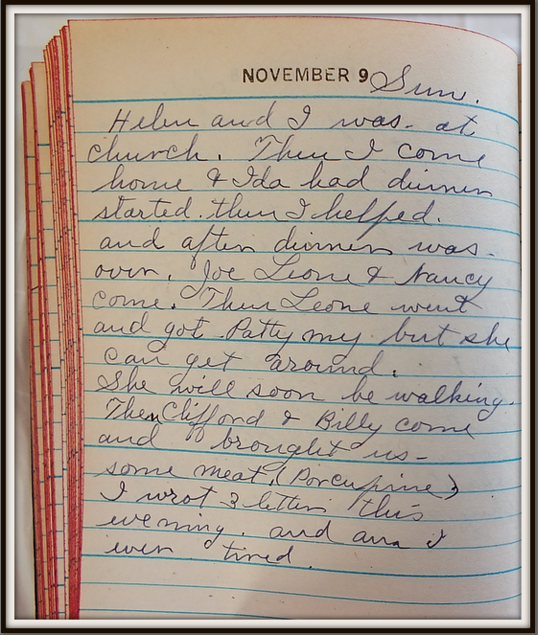 NOVEMBER 9 Sun.
Helen and I was at
church. Then I come
home & Ida had dinner
started. then I helped.
and after dinner was
over. Joe Leone & Nancy
come. Then Leone went
and got Patty my but she
can get around.
She will soon be walking.
Then Clifford & Billy come
and brought us
some meat, (Porcupine)
I wrot 3 letters this
evening. and am I
even tired.